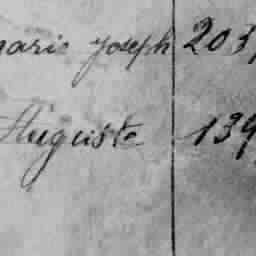 marie joseph 203
Auguste 139